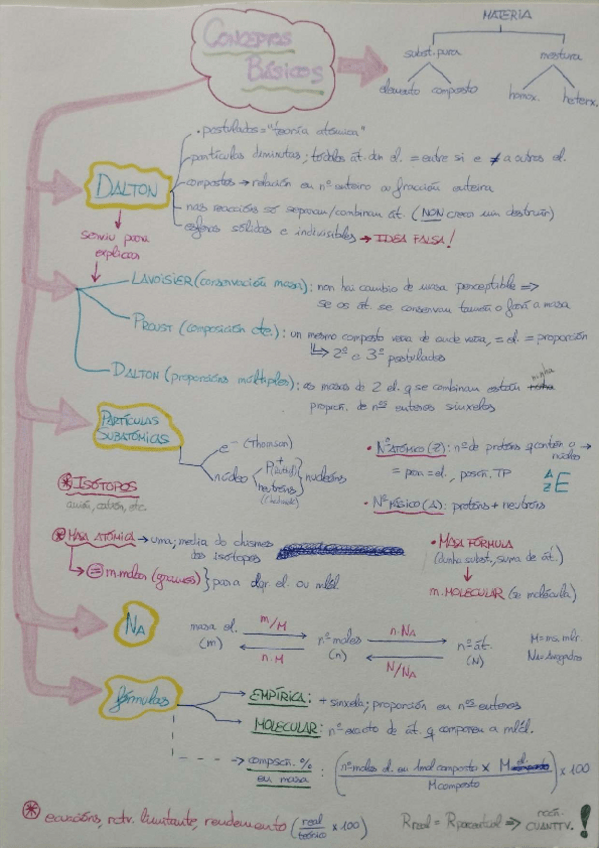 CONCEPTOS BÁSICOS
MATERIA
subst. pura
mestura
elemento composto
homox. heterx.
• postulados = "teoría atómica"
DALTON
partículas diminutas; tódolos át. dun el. = entre si e ≠ a outros el.
compostos → relación en nº enteiro ou fracción enteira
nas reaccións só separan/combinan át. (NON crean nin destrúen)
esferas sólidas e indivisibles → IDEA FALSA!
serviu para explicar
LAVOISIER (conservación masa): non hai cambio de masa perceptible ⇒
se os át. se conservan tamén o fará a masa
PROUST (composición cte.): un mesmo composto veña de onde veña, = el. = proporción
↳ 2º e 3º postulados
DALTON (proporcións múltiples): as masas de 2 el. q se combinan están nunha
proporc. de nºs enteiros sinxelos
PARTÍCULAS SUBATÓMICAS
e⁻ (Thomson)
núcleo
P⁺
neutróns
(Chadwick)
nucleóns
• Nº ATÓMICO (Z): nº de protóns q contén o núcleo →
= para = el., posic. TP
A
Z E
• Nº MÁSICO (A): protóns + neutróns
* ISÓTOPOS
anión, catión, etc.
* MASA ATÓMICA → uma; media do
dos isótopos
= m. molar (gramos) } para
el. ou mlcl.
• MASA FÓRMULA
(dunha subst., suma de át.)
m. MOLECULAR (se molécula)
NA
masa el.
(m)
m/M
n·M
nº moles
(n)
n·NA
N/NA
nº át.
(N)
M = ma. mlr.
N Avogadro
fórmulas
EMPÍRICA: + sinxela; proporción en nºs enteiros
MOLECULAR: nº exacto de át. q compoñen a mlcl.
composic. % en masa : (nº moles el. en 1mol composto × M / M composto) × 100
* ecuacións, rctv. limitante, rendemento (real/teórico × 100)
R real = R porcentual ⇒
CUANTTV. !